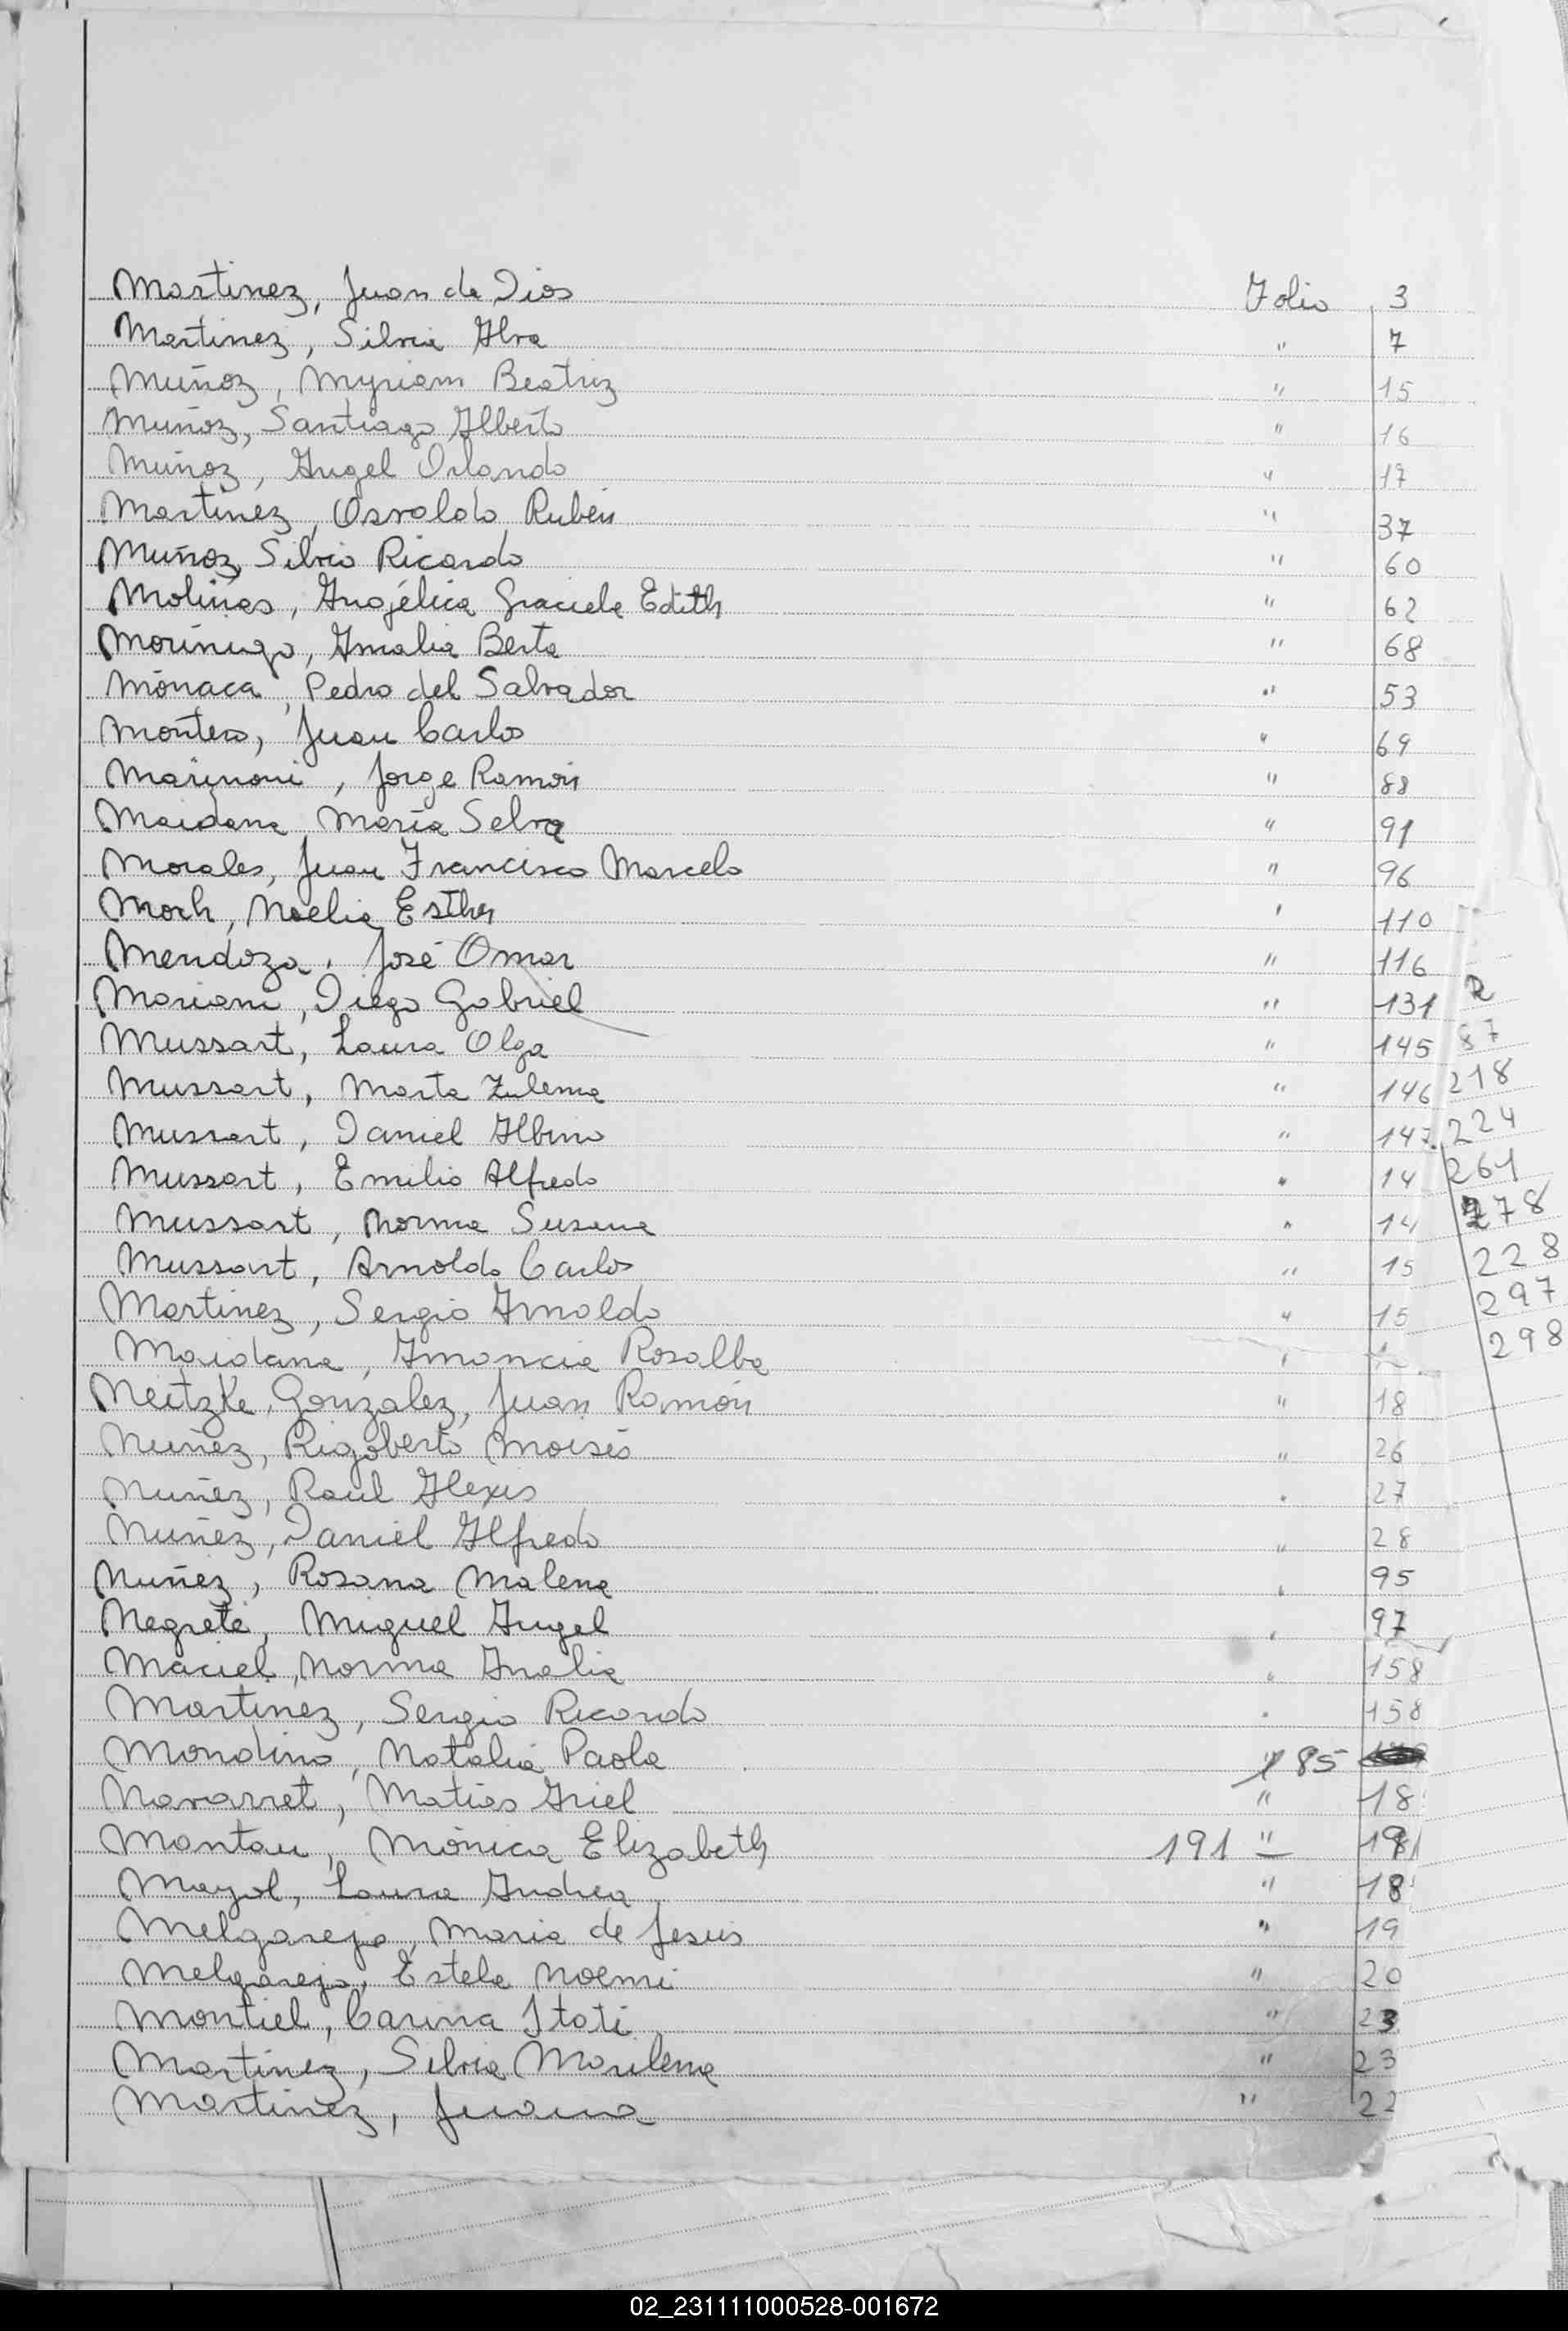 Martinez, Juan de Dios Folio 3
Martinez, Silvia Alva " 7
Muñoz, Myriam Beatriz " 15
Muñoz, Santiago Alberto " 16
Muñoz, Angel Orlando " 17
Martinez, Osvaldo Rubén " 37
Muñoz, Silvio Ricardo " 60
Molinas, Angélica Graciela Edith " 62
Morinigo, Amalia Berta " 68
Mónaca, Pedro del Salvador " 53
Montero, Juan Carlos " 69
Marinoni, Jorge Ramón " 88
Maidana, María Selva " 91
Morales, Juan Francisco Marcelo " 96
Moch, Noelia Esther " 110
Mendoza, José Omar " 116
Mariani, Diego Gabriel " 131 R
Mussart, Laura Olga " 145 87
Mussart, Marta Zulema " 146 218
Mussart, Daniel Albino " 147 224
Mussart, Emilio Alfredo " 14 261
Mussart, Norma Susana " 14 278
Mussart, Arnoldo Carlos " 15 228
Martinez, Sergio Arnoldo " 15 297
Maidana, Amancia Rosalba " 298
Meitzke, Gonzalez, Juan Ramón " 18
Nuñez, Rigoberto Moisés " 26
Nuñez, Raul Alexis " 27
Nuñez, Daniel Alfredo " 28
Nuñez, Rosana Malena " 95
Negrete, Miguel Angel " 97
Maciel, Norma Analia " 158
Martinez, Sergio Ricardo " 158
Mondino, Natalia Paola " 185
Navarret, Matias Ariel " 18
Montau, Mónica Elizabeth 191 " 19
Mayol, Laura Andrea " 18
Melgarejo, Maria de Jesús " 19
Melgarejo, Estela Noemi " 20
Montiel, Carina Itati " 23
Martinez, Silvia Marilena " 23
Martinez, Juana " 22
02_231111000528-001672